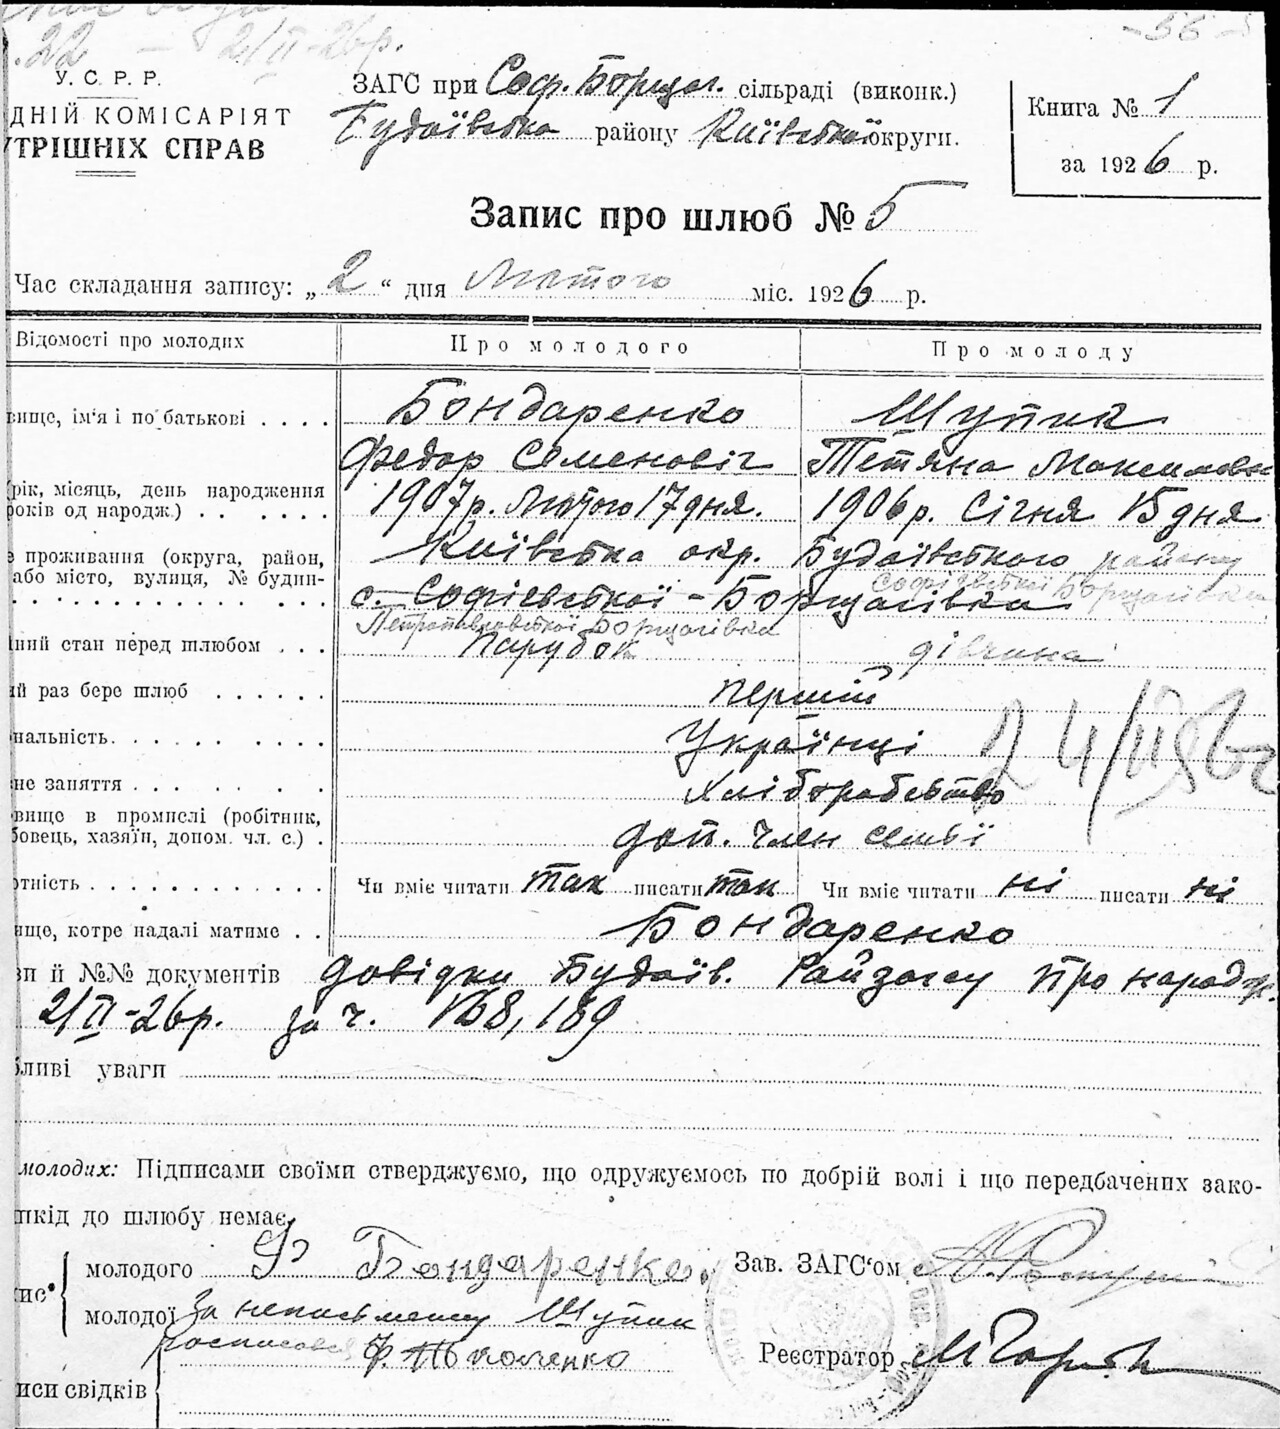 .22 — 2/II-26р. -56-
У. С. Р. Р.
ДНІЙ КОМІСАРІЯТ
ТРІШНІХ СПРАВ
ЗАГС при Соф. Борщаг. сільраді (виконк.)
Будаївська району Київської округи.
Книга № 1
за 1926 р.
Запис про шлюб № 5
Час складання запису: „2“ дня Лютого міс. 1926 р.
Відомості про молодих Про молодого Про молоду
вище, ім'я і по батькові . . . . Бондаренко Шупик
Федор Семеновіч Тетяна Максимовн
рік, місяць, день народження 1907р. Лютого 17 дня. 1906р. Січня 15 дня
років од народж.) . . . . . .
проживання (округа, район, Київська окр. Будаївського району
або місто, вулиця, № будин- Софіївської Борщагівки
с. Софієвської - Борщагівка
Петропавловської Борщагівка
ний стан перед шлюбом . . . парубок дівчина
ий раз бере шлюб . . . . . . перший
нальність. . . . . . . . . . Українці 24/II 56г
не заняття . . . . . . . Хліборобство
вище в промислі (робітник,
бовець, хазяїн, допом. чл. с.) . доп. член семьї
отність . . . . . . . . . . . . Чи вміє читати так писати так Чи вміє читати ні писати ні
ище, котре надалі матиме . . Бондаренко
зи й №№ документів довідки Будаїв. Райзагсу про народж.
2/II-26р. за ч. 188, 189
ливі уваги
молодих: Підписами своїми стверджуємо, що одружуємось по добрій волі і що передбачених зако-
шкід до шлюбу немає.
молодого Ф Бондаренко. Зав. ЗАГС'ом
ис
молодої За неписьменну Шупик
росписався Ф.
Реєстратор
иси свідків